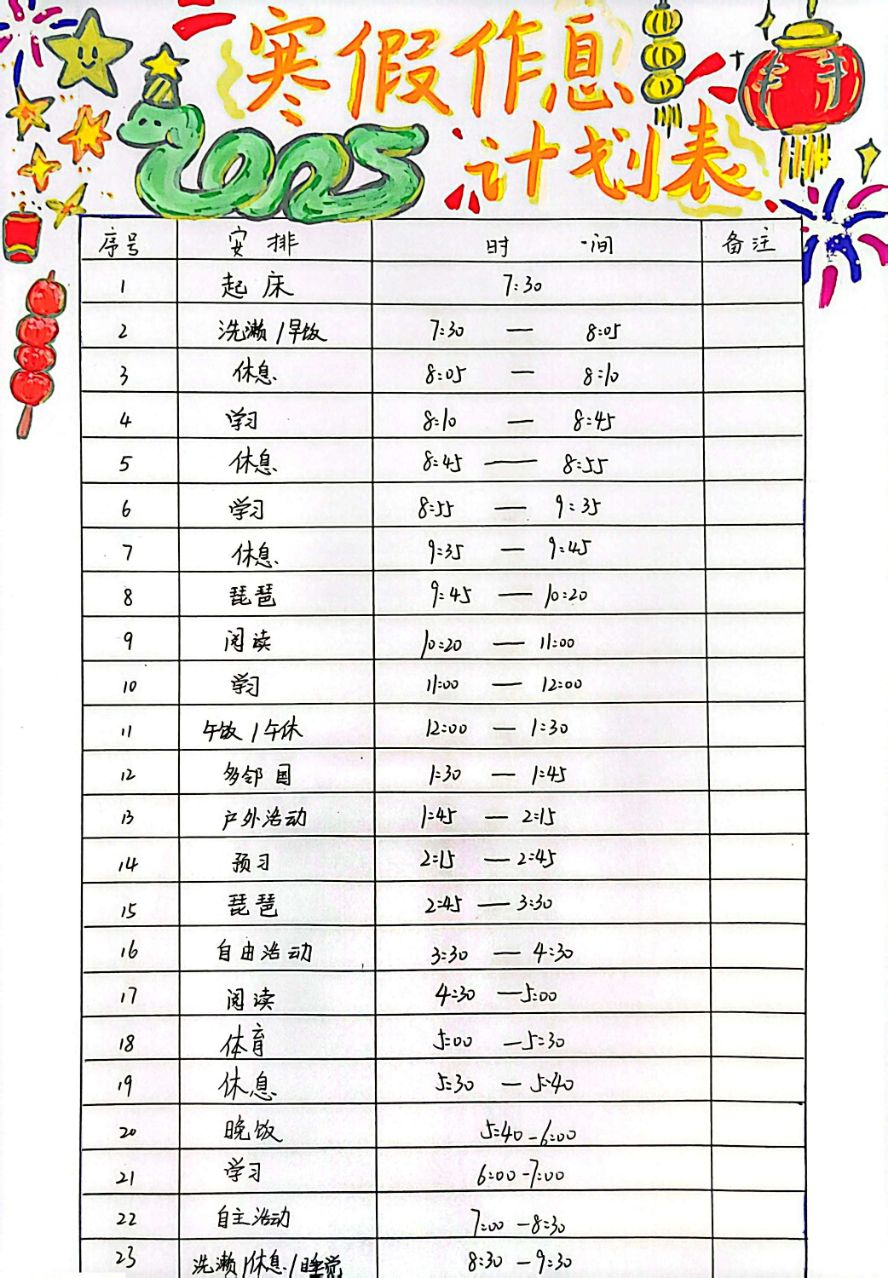 寒假作息
2025 计划表
序号 安排 时间 备注
1 起床 7:30
2 洗濑/早饭 7:30 — 8:05
3 休息 8:05 — 8:10
4 学习 8:10 — 8:45
5 休息 8:45 — 8:55
6 学习 8:55 — 9:35
7 休息 9:35 — 9:45
8 琵琶 9:45 — 10:20
9 阅读 10:20 — 11:00
10 学习 11:00 — 12:00
11 午饭/午休 12:00 — 1:30
12 多邻国 1:30 — 1:45
13 户外活动 1:45 — 2:15
14 预习 2:15 — 2:45
15 琵琶 2:45 — 3:30
16 自由活动 3:30 — 4:30
17 阅读 4:30 — 5:00
18 体育 5:00 — 5:30
19 休息 5:30 — 5:40
20 晚饭 5:40 - 6:00
21 学习 6:00 - 7:00
22 自主活动 7:00 - 8:30
23 洗濑/休息/睡觉 8:30 - 9:30